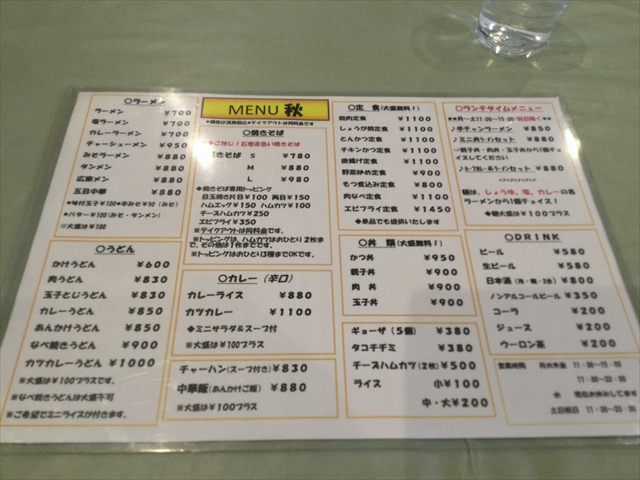 ○ラーメン
ラーメン ¥700
塩ラーメン ¥700
カレーラーメン ¥700
チャーシューメン ¥950
みそラーメン ¥880
タンメン ¥880
広東メン ¥880
五目中華 ¥880
※味付玉子¥100※辛みそ¥50(みそ)
※バター¥100(みそ・タンメン)
※大盛は¥100
○うどん
かけうどん ¥600
肉うどん ¥830
玉子とじうどん ¥830
カレーうどん ¥850
あんかけうどん ¥850
なべ焼きうどん ¥900
カツカレーうどん ¥1000
※大盛は¥100プラスです。
※なべ焼きうどんは大盛不可
※ご希望でミニライスが付きます。
MENU 秋
※価格は消費税込※テイクアウトは同料金です
○焼きそば
焼きそば S ¥780
M ¥880
L ¥980
◆焼きそば専用トッピング
目玉焼き片目¥100 両目¥150
ハムエッグ¥150 ハムカツ¥100
チーズハムカツ¥250
エビフライ¥350
※テイクアウトは同料金です。
※トッピングは、ハムカツはおひとり2枚まで、その他は1枚までです。
※トッピングはおひとり3種までOKです。
○カレー (辛口)
カレーライス ¥880
カツカレー ¥1100
◆ミニサラダ&スープ付
※大盛は¥100プラス
チャーハン(スープ付き) ¥830
中華飯(あんかけご飯) ¥880
※大盛は¥100プラス
○定 食 (大盛無料!)
焼肉定食 ¥1100
しょうが焼定食 ¥1100
とんかつ定食 ¥1100
チキンかつ定食 ¥1100
唐揚げ定食 ¥1100
野菜炒め定食 ¥900
もつ煮込み定食 ¥800
肉なべ定食 ¥1100
エビフライ定食 ¥1450
◆単品でも提供いたします
○丼 類 (大盛無料!)
かつ丼 ¥950
親子丼 ¥900
肉 丼 ¥900
玉子丼 ¥900
ギョーザ (5個) ¥380
タコチヂミ ¥380
チーズハムカツ(2枚) ¥500
ライス 小¥100
中・大¥200
○ランチタイムメニュー
¥850
¥880
◆ミニ丼
☆親子丼、肉丼、玉子丼から1個チョイスしてください
¥880
麺は、しょうゆ、塩、カレーの各ラーメンから1個チョイス!
◆麺大盛は¥100プラス
○DRINK
ビール ¥580
生ビール ¥580
日本酒 ¥200
ノンアルコールビール ¥350
コーラ ¥200
ジュース ¥200
ウーロン茶 ¥200
営業時間 月火木金 11:00~15:00
土日祝日